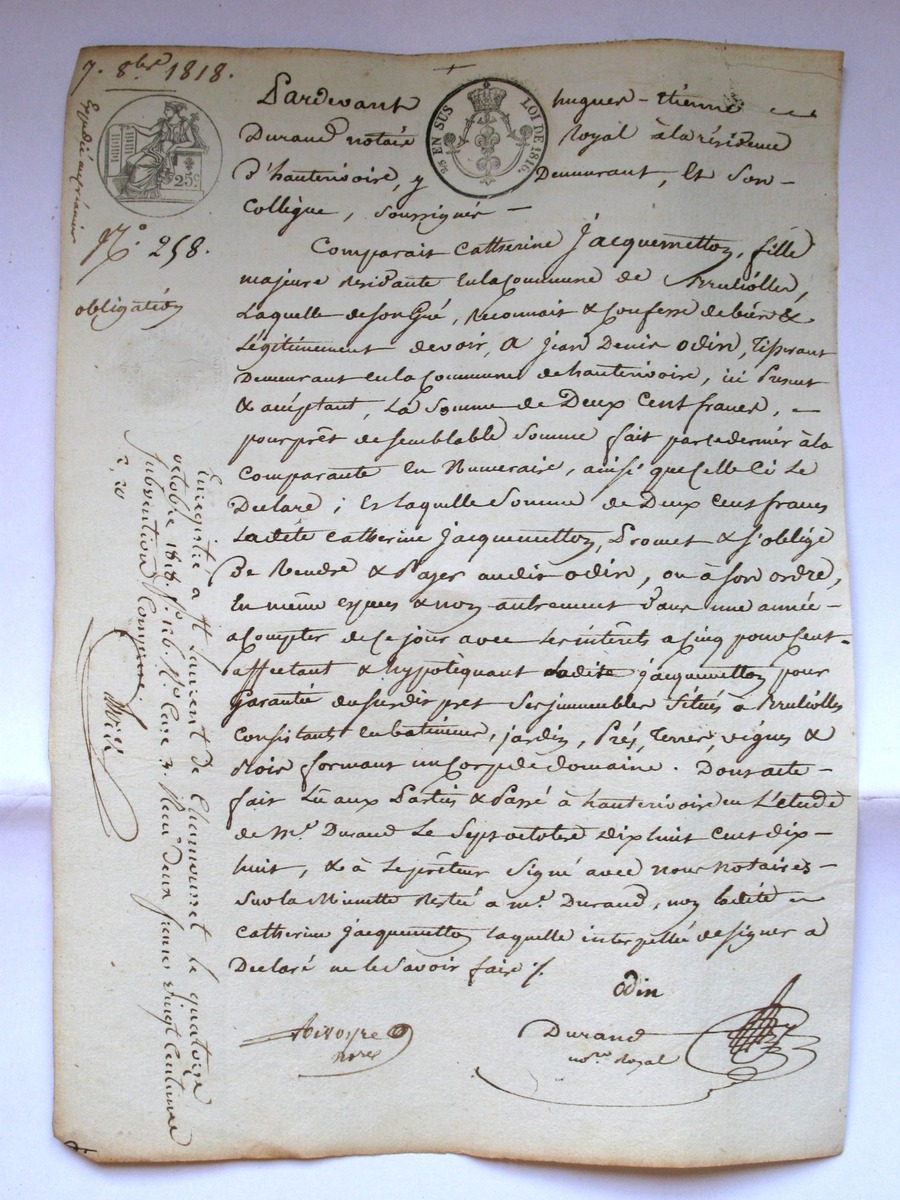 7. 8bre 1818.
Expédié au créancier
25c
2/5 EN SUS LOI DE 1816.
N.º 258.
obligation
Pardevant hugues-étienne
Durand notaire Royal à la résidence
D'hauterivoire, y Demeurant, Et Son
Collègue, soussignés —
Comparait Catherine Jacquemetton, fille
majeure résidante En la Commune de Brulliolles,
Laquelle de son Gré, Reconnait & Confesse de bien &
Légitimement devoir, a Jean Denis Odin, Tisserant
Demeurant en la Commune de hauterivoire, ici Présent
& acceptant, La Somme de Deux Cent francs, —
pour prêt de semblable Somme fait par ce dernier à la
Comparante En Numeraire, ainsi que Celle Ci Le
Déclare ; Et Laquelle Somme de Deux Cent francs
Ladite Catherine Jacquemetton, Promet & s'oblige
De Rendre & Payer audit odin, ou à Son ordre,
En même espèces & non autrement Dans une année
a Compter de Ce jour avec Les intérêts a Cinq pour Cent
affectant & hypotèquant Ladite jacquemetton pour
Garantie du susdit prêt Ses immeubles Situés a Brulliolles
Consistants en batiments, jardin, Prés, Terres, vignes &
Bois formant un Corps de domaine. Dont acte
fait Lû aux Parties & Passé à hauterivoire en L'étude
de Mе. Durand Le Sept octobre dix huit Cent dix-
huit, & à Le prêteur Signé avec nous notaires
Sur la Minutte Restée a me. Durand, non ladite
Catherine jacquemetton laquelle interpellée de signer a
Déclaré ne le Savoir faire ./.
Odin
Durand
nore. Royal
nore
Enregistré a St Laurent de Chamousset le quatorze
octobre 1818. fo. 126. Ro. Case 3. Reçu Deux francs vingt Centimes
Subvention Comprise
2,20